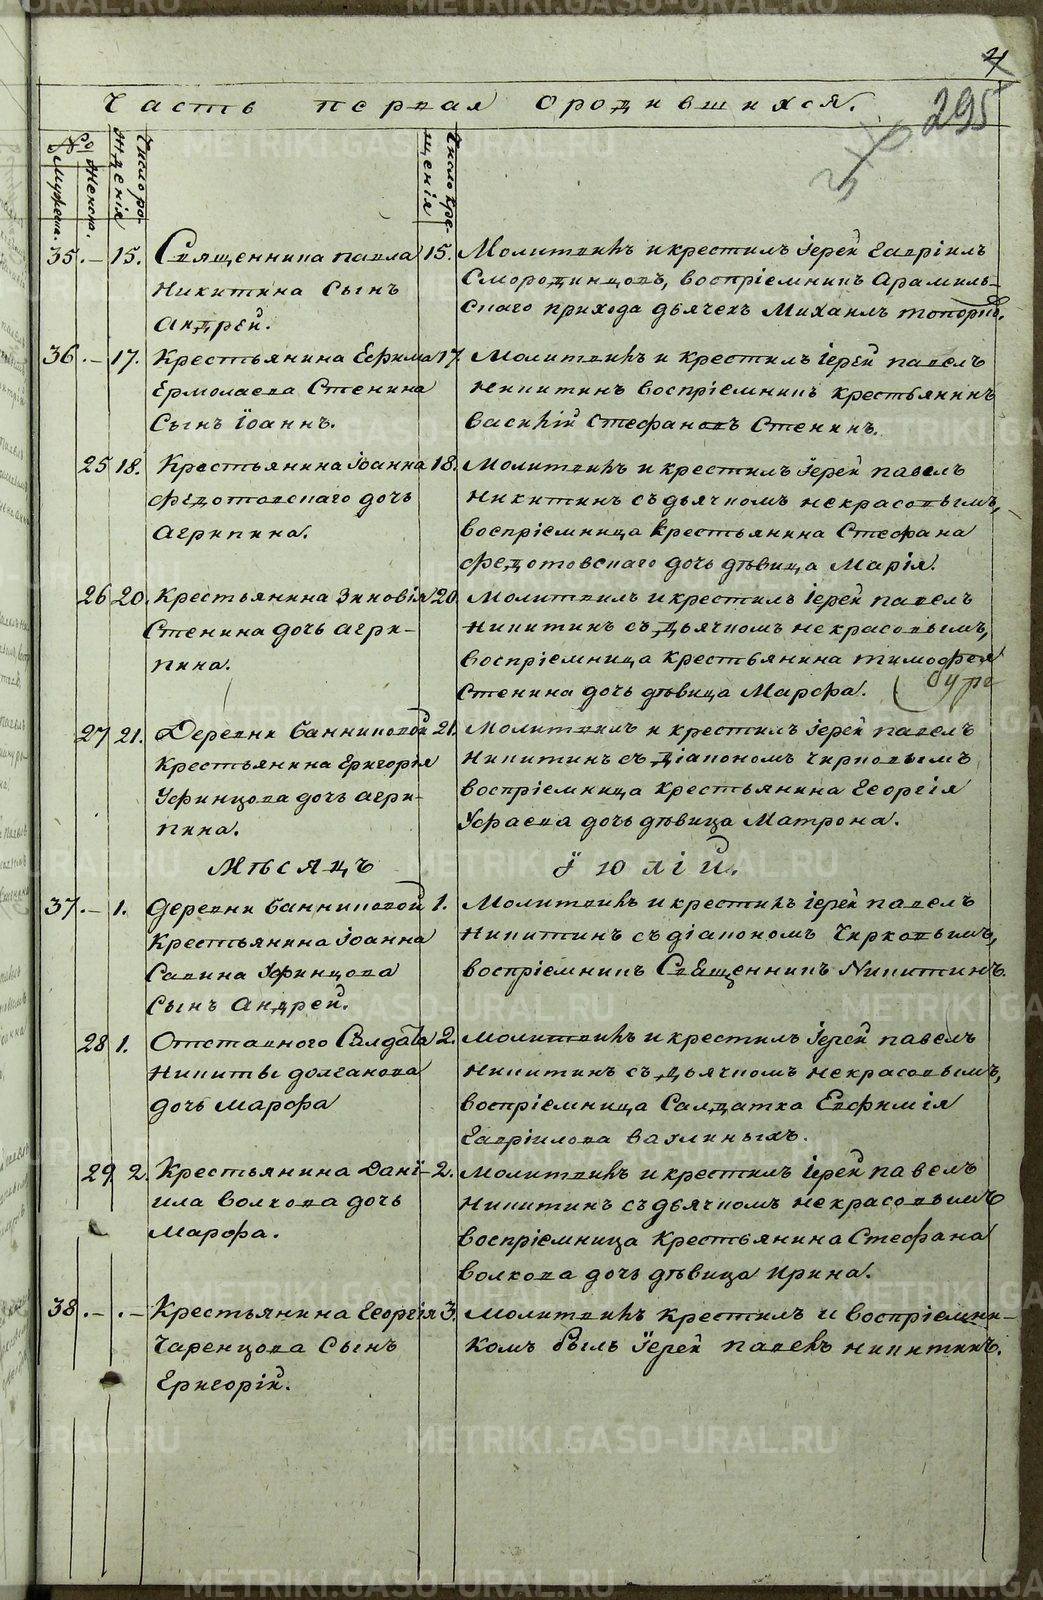 Часть первая о родившихся.
295
№
Мужеск.
Женск.
Число рожденія
Число крещенія
35. – 15. Священника павла 15. Молитвилъ и крестилъ Іерей Гавріилъ
Никитина Сынъ Смородинцовъ, воспріемникъ Арамиль-
Андрей. скаго прихода дьячекъ Михаилъ
36. – 17. Крестьянина Ефима 17. Молитвилъ и крестилъ Іерей павелъ
Ермолаева Стенина никитинъ воспріемникъ крестьянинъ
Сынъ Іоаннъ. Василій Стефановъ Стенинъ.
25 18. Крестьянина Іоанна 18. Молитвилъ и крестилъ Іерей павелъ
федотовскаго дочь никитинъ съ дьячкомъ некрасовымъ,
агрипина. воспріемница крестьянина Стефана
федотовскаго дочь дѣвица Марія.
26 20. Крестьянина Зиновія 20. Молитвилъ и крестилъ Іерей павелъ
Стенина дочь агри- никитинъ съ дьячкомъ некрасовымъ,
пина. воспріемница крестьянина тимофея
Стенина дочь дѣвица Марфа.
27 21. Деревни банниковой 21. Молитвилъ и крестилъ Іерей павелъ
крестьянина григорія никитинъ съ діакономъ чирковымъ
Уфинцова дочь агри- воспріемница крестьянина Георгія
пина. Уфаева дочь дѣвица Матрона.
Мѣсяцъ Іюлій.
37. – 1. деревни банниковой 1. Молитвилъ и крестилъ Іерей павелъ
крестьянина Іоанна никитинъ съ діакономъ Чирковымъ,
Савина Уфинцова воспріемникъ Священникъ Никитинъ.
Сынъ Андрей.
28 1. Отставного Салдата 2. Молитвилъ и крестилъ Іерей павелъ
Никиты долганова никитинъ съ дьячкомъ некрасовымъ,
дочь Марфа воспріемница Салдатка Евфимія
Гавріилова вахлиныхъ.
29 2. Крестьянина Дані- 2. Молитвилъ и крестилъ Іерей павелъ
ила волкова дочь никитинъ съ дьячкомъ некрасовымъ
Марфа. воспріемница крестьянина Стефана
волкова дочь дѣвица Ирина.
38. – . – Крестьянина Георгія 3. Молитвилъ крестилъ и воспріемни-
Чаренцова Сынъ комъ былъ Іерей павелъ никитинъ.
Григорій.
METRIKI.GASO-URAL.RU